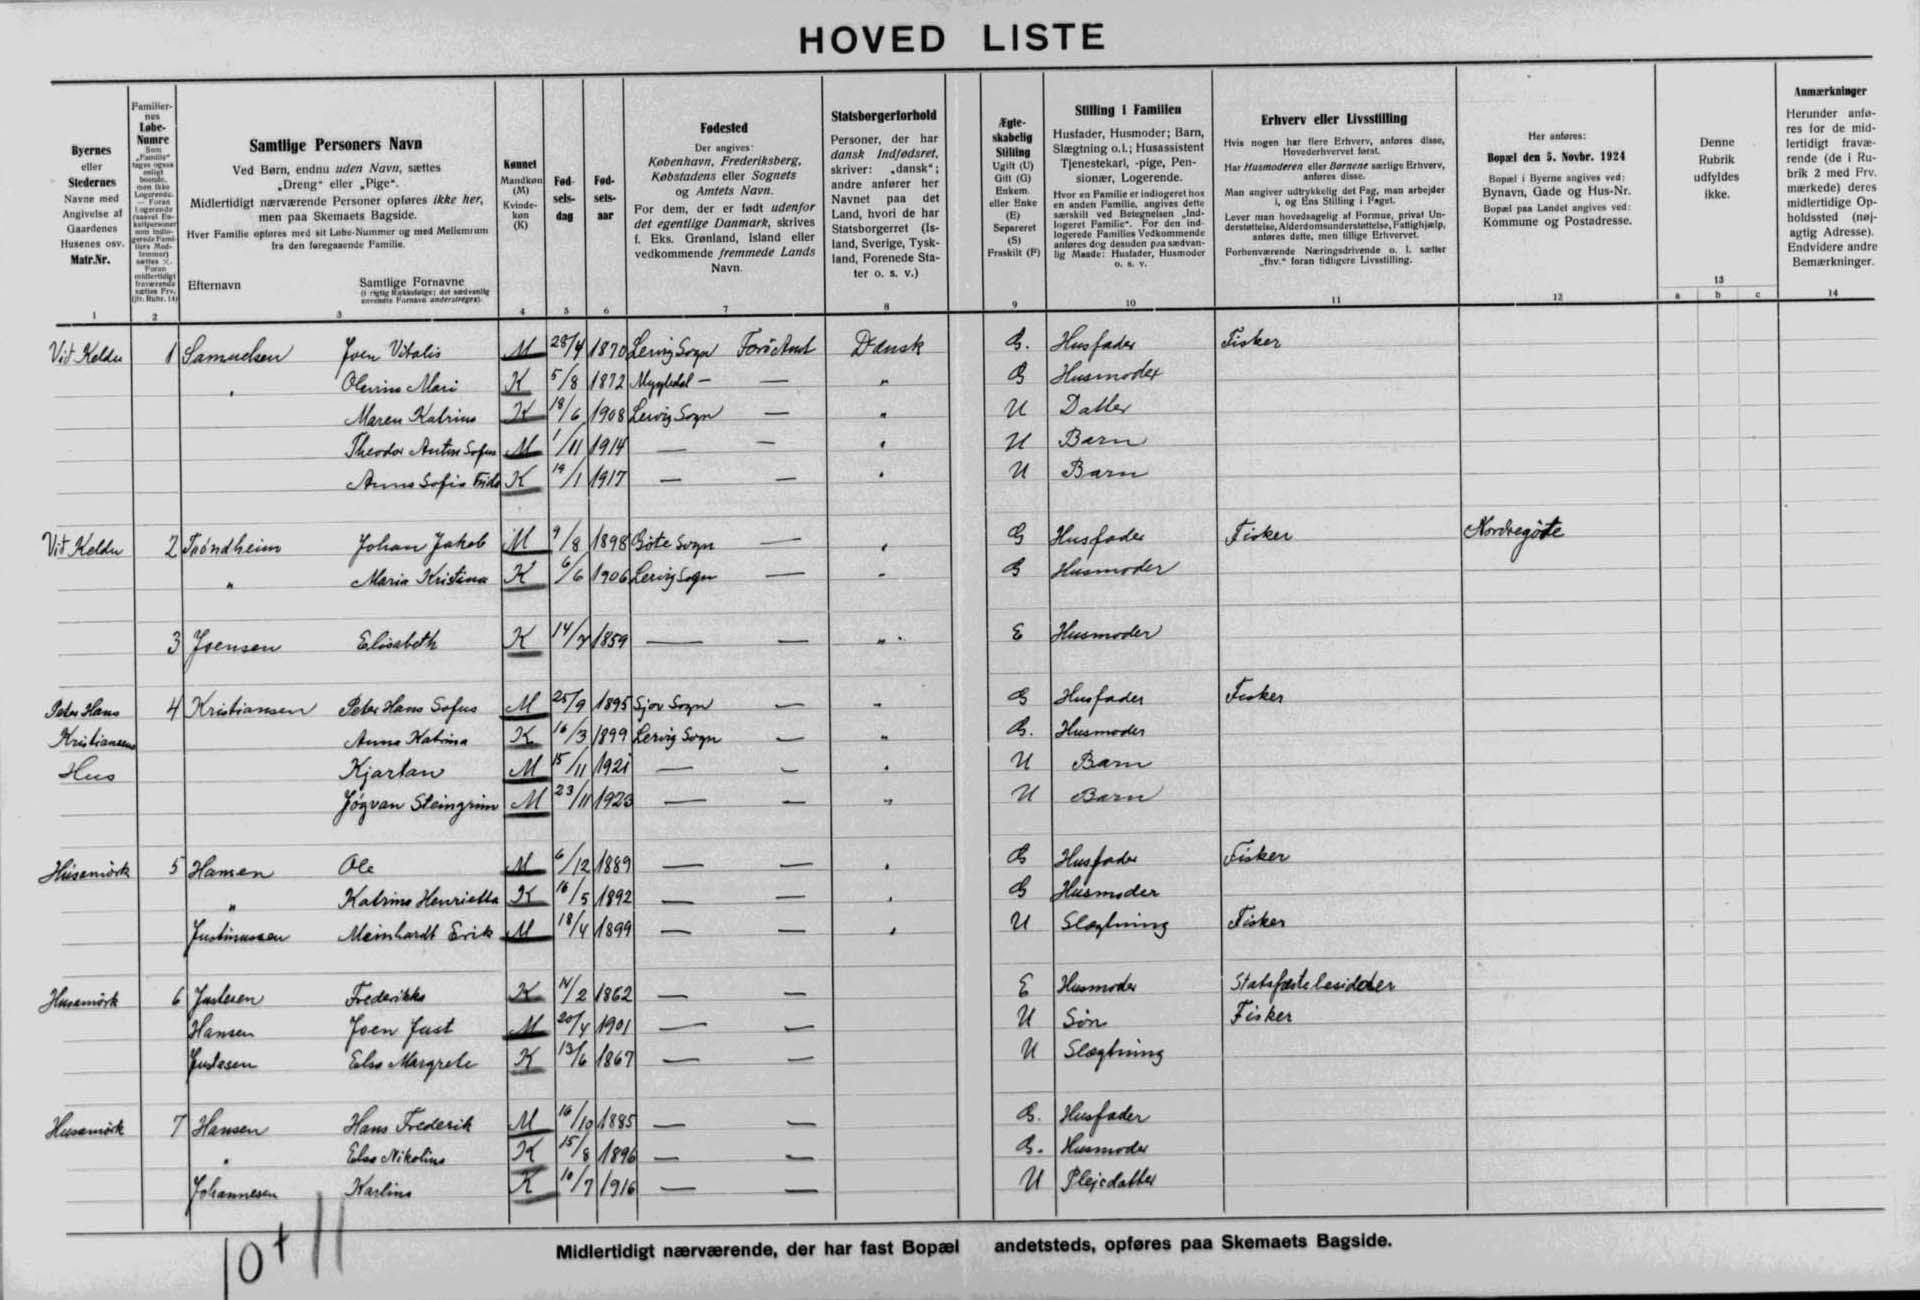 HOVED LISTE
Byernes eller Stedernes Navne med Angivelse af Gaardenes Husenes osv. Matr.Nr.
Familiernes Løbe-Numre
Samtlige Personers Navn
Ved Børn, endnu uden Navn, sættes „Dreng“ eller „Pige“.
Midlertidigt nærværende Personer opføres ikke her, men paa Skemaets Bagside.
Hver Familie opføres med sit Løbe-Nummer og med Mellemrum fra den foregaaende Familie.
Efternavn Samtlige Fornavne
(i rigtig Rækkefølge; det sædvanlig anvendte Fornavn understreges).
Kønnet Mandkøn (M) Kvindekøn (K)
Fødselsdag
Fødselsaar
Fødested
Der angives: København, Frederiksberg, Købstadens eller Sognets og Amtets Navn.
For dem, der er født udenfor det egentlige Danmark, skrives f. Eks. Grønland, Island eller vedkommende fremmede Lands Navn.
Statsborgerforhold
Personer, der har dansk Indfødsret, skriver: „dansk“; andre anfører her Navnet paa det Land, hvori de har Statsborgerret (Island, Sverige, Tyskland, Forenede Stater o. s. v.)
Ægteskabelig Stilling
Ugift (U) Gift (G) Enkem. eller Enke (E) Separeret (S) Fraskilt (F)
Stilling i Familien
Husfader, Husmoder; Barn, Slægtning o.l.; Husassistent Tjenestekarl, -pige, Pensionær, Logerende.
Hvor en Familie er indlogeret hos en anden Familie, angives dette særskilt ved Betegnelsen „Indlogeret Familie“. For den indlogerede Families Vedkommende anføres dog desuden paa sædvanlig Maade: Husfader, Husmoder o. s. v.
Erhverv eller Livsstilling
Hvis nogen har flere Erhverv, anføres disse, Hovederhvervet først.
Har Husmoderen eller Børnene særlige Erhverv, anføres disse.
Man angiver udtrykkelig det Fag, man arbejder i, og Ens Stilling i Faget.
Lever man hovedsagelig af Formue, privat Understøttelse, Alderdomsunderstøttelse, Fattighjælp, anføres dette, men tillige Erhvervet.
Forhenværende Næringsdrivende o. l. sætter „fhv.“ foran tidligere Livsstilling.
Her anføres:
Bopæl den 5. Novbr. 1924
Bopæl i Byerne angives ved: Bynavn, Gade og Hus-Nr.
Bopæl paa Landet angives ved: Kommune og Postadresse.
Denne Rubrik udfyldes ikke.
Anmærkninger
Herunder anføres for de midlertidigt fraværende (de i Rubrik 2 med Frv. mærkede) deres midlertidige Opholdssted (nøjagtig Adresse). Endvidere andre Bemærkninger.
1 2 3 4 5 6 7 8 9 10 11 12 13 a b c 14
Vit Keldu 1 Samuelsen Joen Vitalis M 28/4 1870 Lervig Sogn Færö Amt Dansk G. Husfader Fisker
" Olevina Mari K 5/8 1872 Mygledal — — " G Husmoder
Maren Katrina K 18/6 1908 Lervig Sogn — " U Datter
Theodor Anton Sofus M 1/11 1914 — — " U Barn
Anna Sofia Frida K 19/1 1917 — — " U Barn
Vit Keldu 2 Tróndheim Johan Jakob M 9/8 1898 Göte Sogn — " G Husfader Fisker Nordregöte
" Maria Kristina K 6/6 1906 Lervig Sogn — " G Husmoder
3 Joensen Elisabeth K 14/7 1859 — — " E Husmoder
Peter Hans 4 Kristiansen Peter Hans Sofus M 25/9 1895 Sjov Sogn — " G Husfader Fisker
Kristiansens Anna Katrina K 16/3 1899 Lervig Sogn — " G. Husmoder
Hus Kjartan M 15/11 1921 — — " U Barn
Jógvan Steingrim M 23/11 1923 — — " U Barn
Húsamörk 5 Hansen Ole M 6/12 1889 — — " G Husfader Fisker
" Katrina Henrietta K 16/5 1892 — — " G Husmoder
Justinussen Meinhardt Erik M 18/4 1899 — — " U Slægtning Fisker
Husamörk 6 Justesen Frederikke K /2 1862 — — E Husmoder Statsfæstebesidder
Hansen Joen Just M 20/4 1901 — — U Søn Fisker
Justesen Elsa Margrete K 13/6 1867 — — U Slægtning
Husamörk 7 Hansen Hans Frederik M 16/10 1885 — — G. Husfader
" Elsa Nikolina K 15/8 1896 — — G. Husmoder
Johannesen Karlina K 10/7 1916 — — U Plejedatter
10+11
Midlertidigt nærværende, der har fast Bopæl andetsteds, opføres paa Skemaets Bagside.